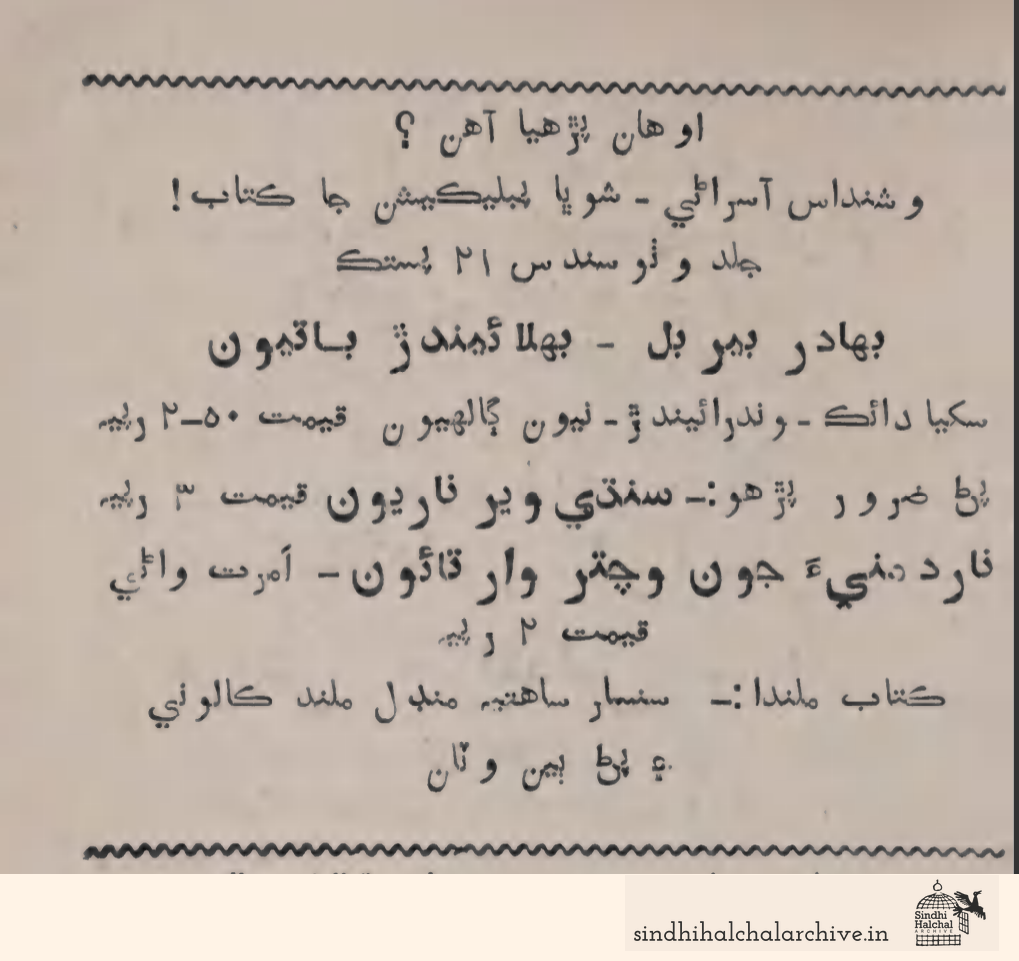 اوهان پڙهيا آهن ؟
وشنداس آسراڻي - شوڀا پبليڪيشن جا ڪتاب!
جلد و نو سندس ٢١ پستڪ
بهادر بيربل - بهلائيندڙ باتيون
سکيا دائڪ - وندرائيندڙ - نيون ڳالهيون قيمت ٥٠-٢ رپيه
پڻ ضرور پڙهو :- سنڌي وير ناريون قيمت ٣ رپيه
نارد منيءَ جون وچتر وارتائون - اَمرت واڻي
قيمت ٢ رپيه
ڪتاب ملندا :- سنسار ساهتيه منڊل ملند ڪالوني
۽ پڻ ٻين وٽان
sindhihalchalarchive.in
Sindhi
Halchal
ARCHIVE